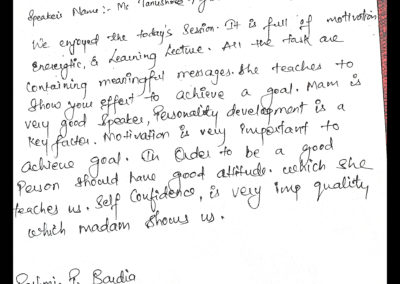 Speaker Name:- Ms Tanishree
We enjoyed the today's Session. It is full of motivation
Energetic, & Learning Lecture. All the task are
Containing meaningful messages. She teaches to
Show your effort to achieve a goal. Mam is
very good Speaker, Personality development is a
Key factor. Motivation is very important to
achieve goal. In Order to be a good
Person Should have good attitude. which She
teaches us. Self Confidence, is very imp quality
which madam Shows us.
P. Bardia